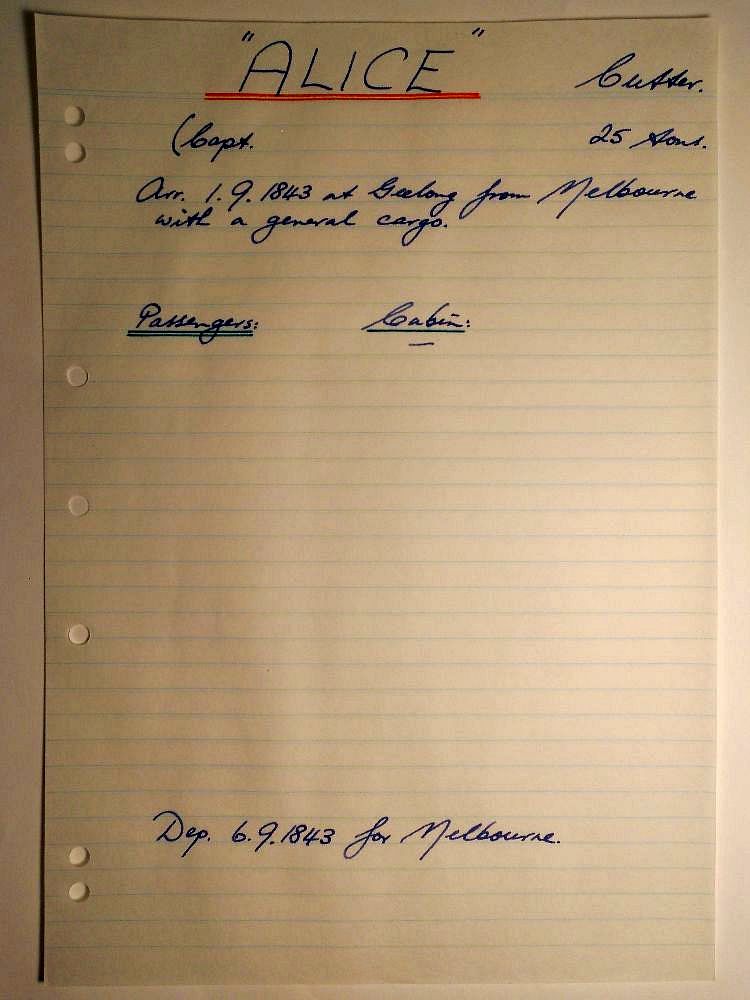 "ALICE"
Cutter.
(Capt.
25 tons.
Arr. 1.9.1843 at Geelong from Melbourne
with a general cargo.
Passengers:
Cabin:
—
Dep. 6.9.1843 for Melbourne.